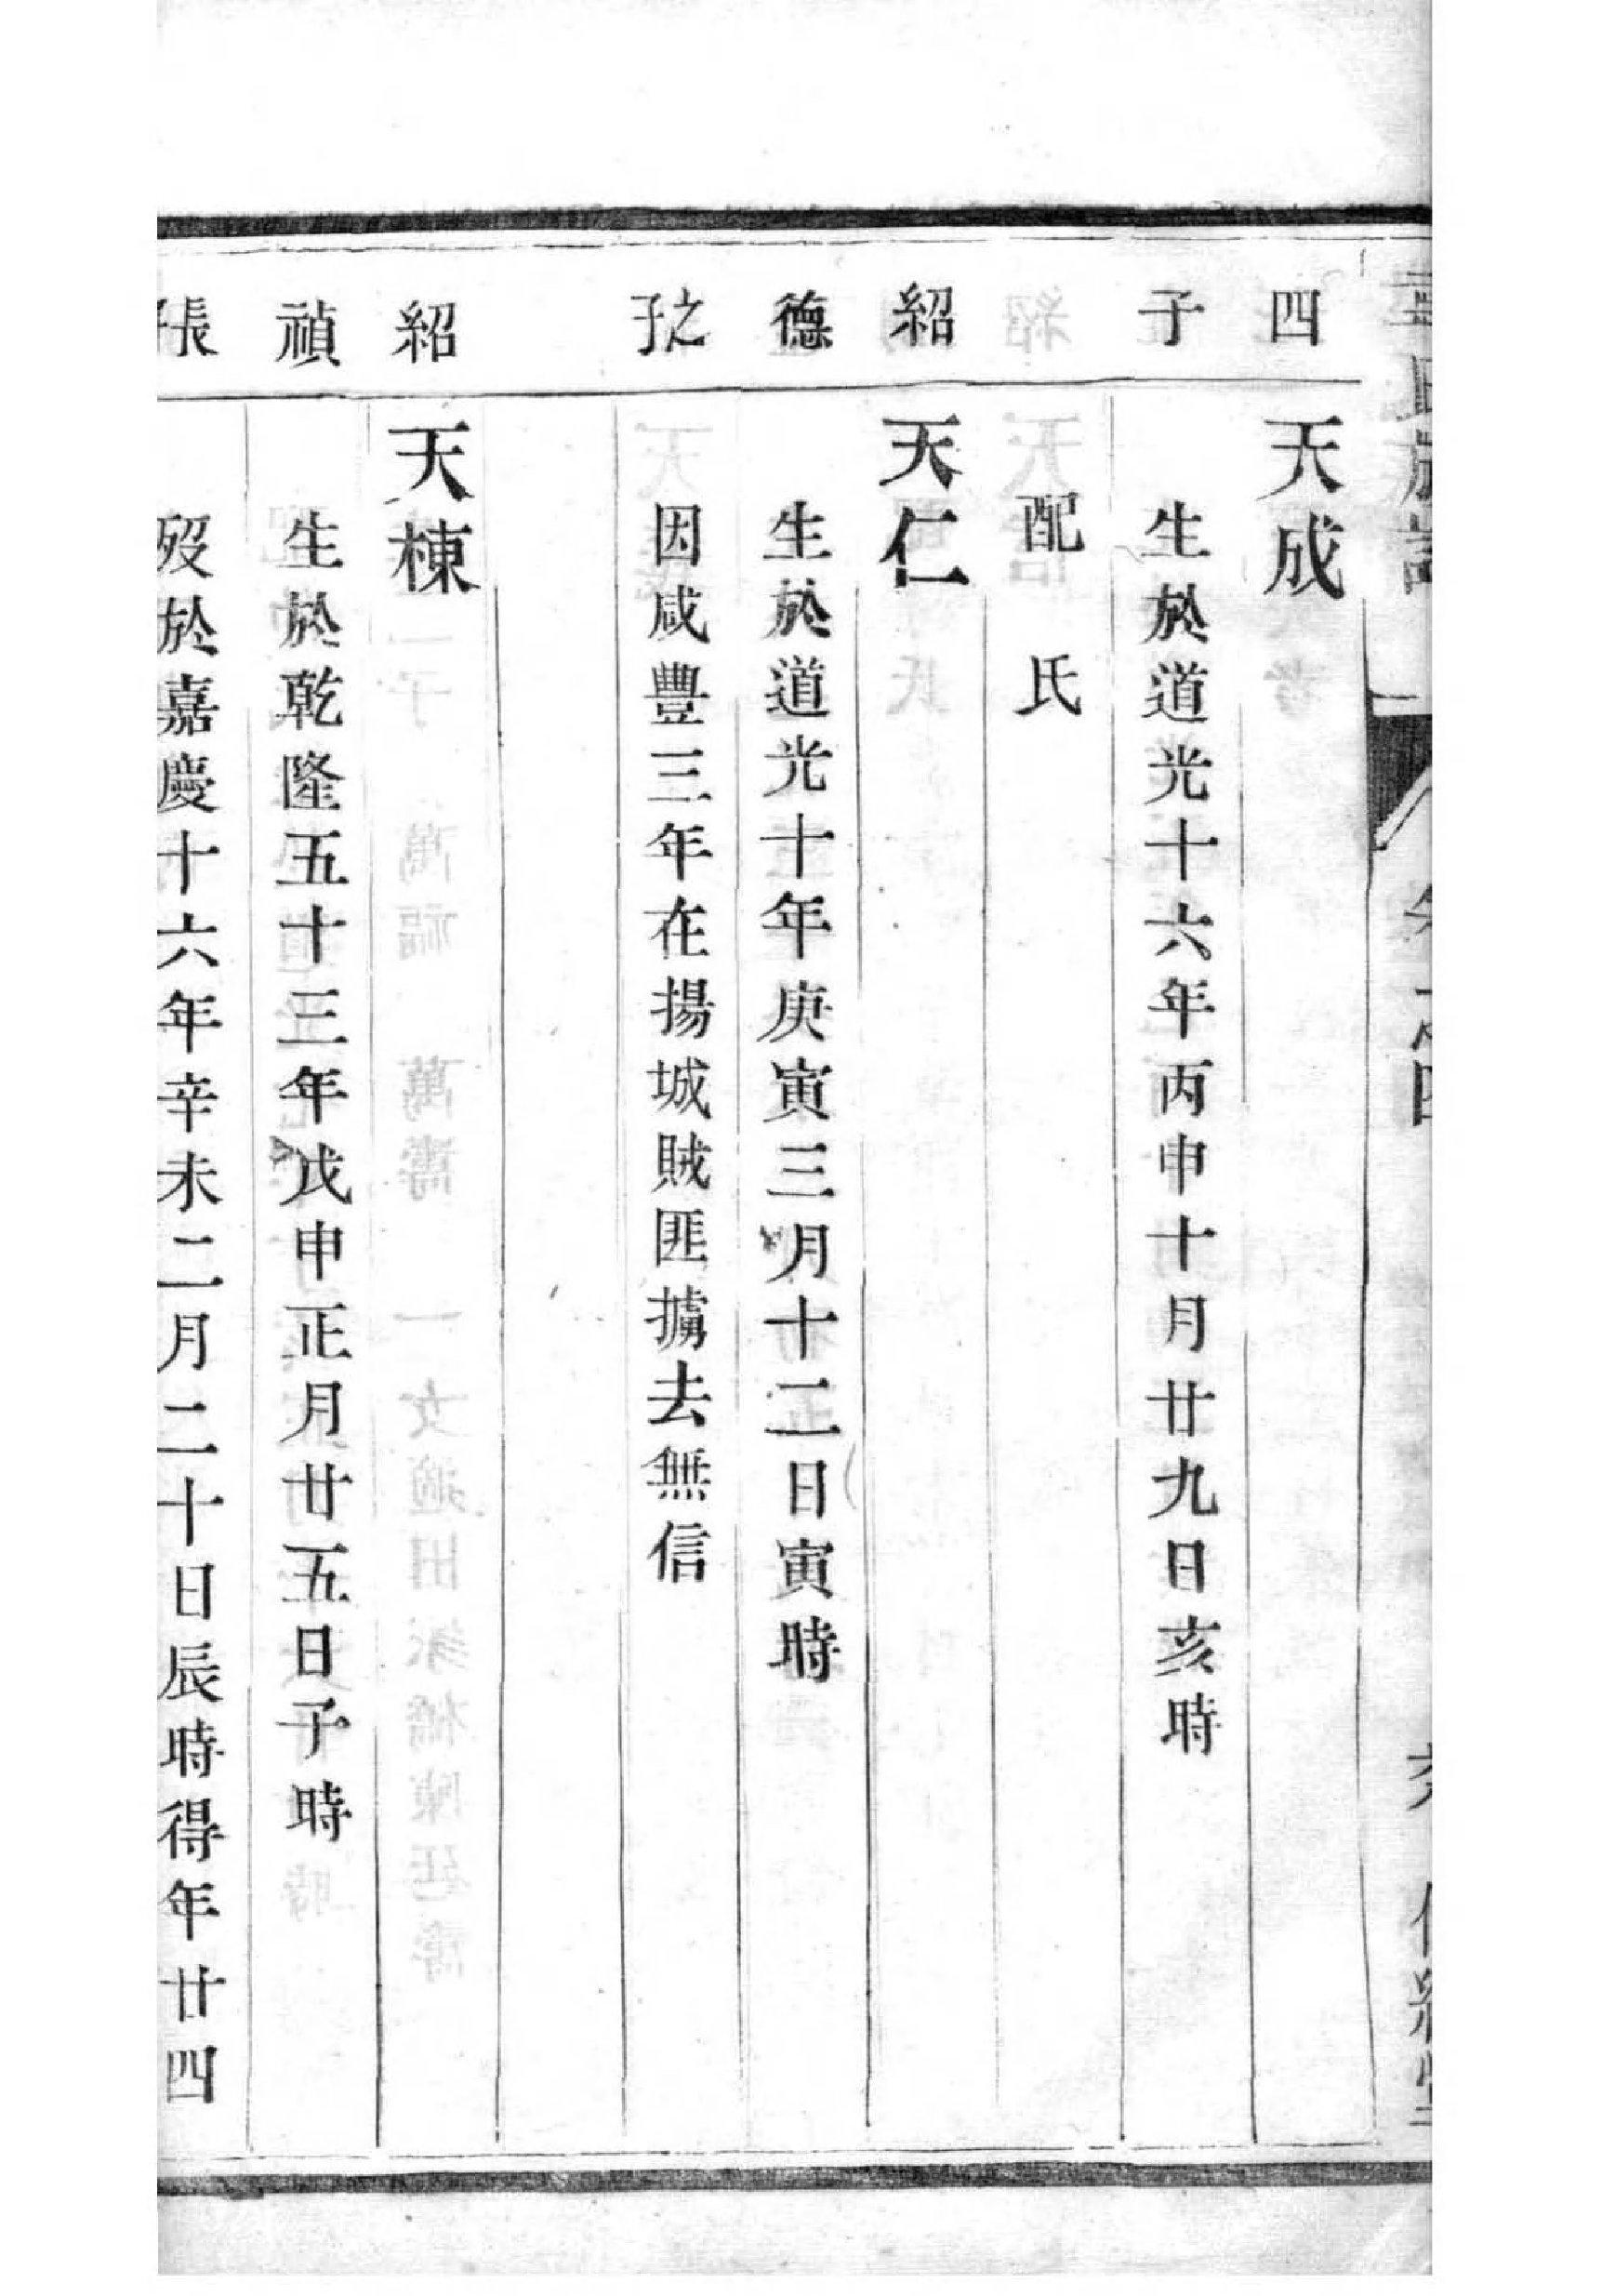 四
天成
子
生於道光十六年丙申十月廿九日亥時
配 氏
紹
天仁
德
生於道光十年庚寅三月十二日寅時
之子
因咸豐三年在揚城賊匪擄去無信
紹
天棟
禎
生於乾隆五十三年戊申正月廿五日子時
長子
歿於嘉慶十六年辛未二月二十日辰時得年廿四